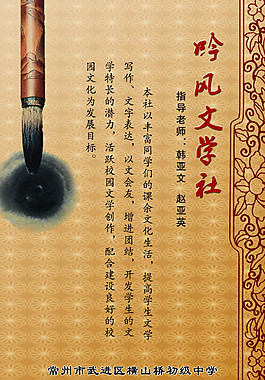 吟风文学社
指导老师：韩亚文　赵亚英
本社以丰富同学们的课余文化生活，提高学生文学
写作、文字表达，以文会友，增进团结，开发学生的文
学特长的潜力，活跃校园文学创作，配合建设良好的校
园文化为发展目标。
常州市武进区横山桥初级中学